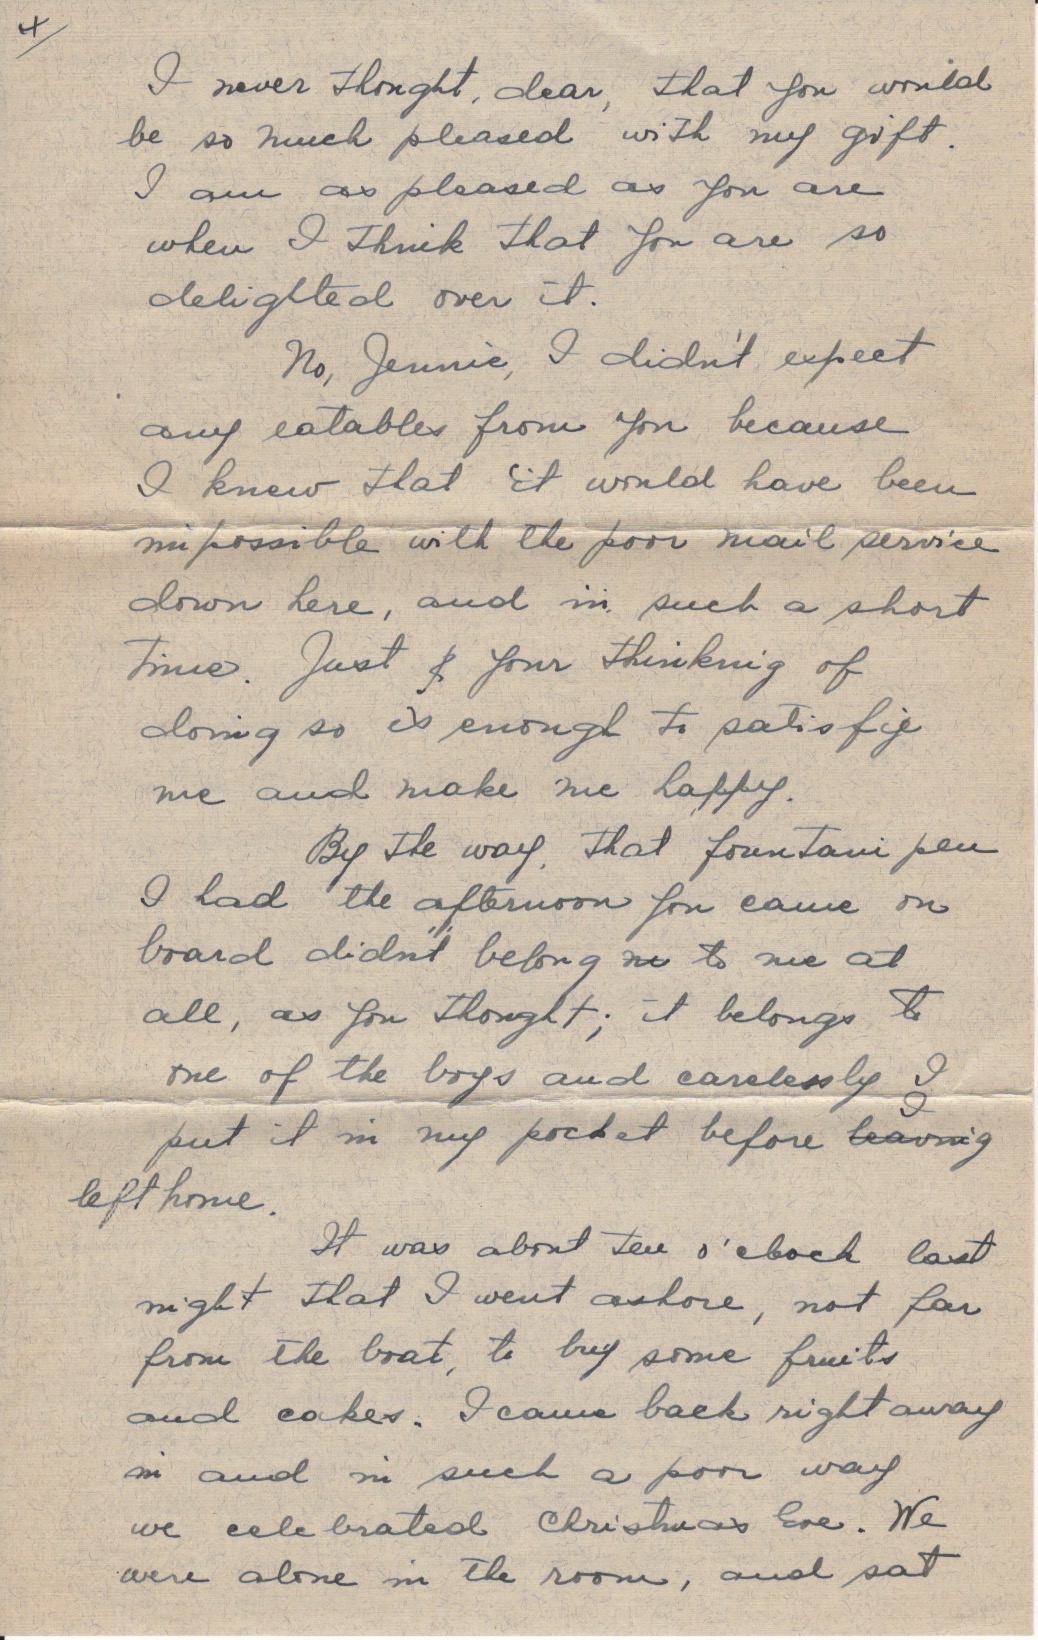 4/
I never thought, dear, that you would
be so much pleased with my gift.
I am as pleased as you are
when I think that you are so
delighted over it.
No, Jennie, I didn't expect
any eatables from you because
I knew that it would have been
impossible with the poor mail service
down here, and in such a short
time. Just your thinking of
doing so is enough to satisfy
me and make me happy.
By the way, that fountain pen
I had the afternoon you came on
board didn't belong to me at
all, as you thought; it belongs to
one of the boys and carelessly I
put it in my pocket before leaving I
left home.
It was about ten o'clock last
night that I went ashore, not far
from the boat, to buy some fruits
and cakes. I came back right away
in and in such a poor way
we celebrated Christmas Eve. We
were alone in the room, and sat